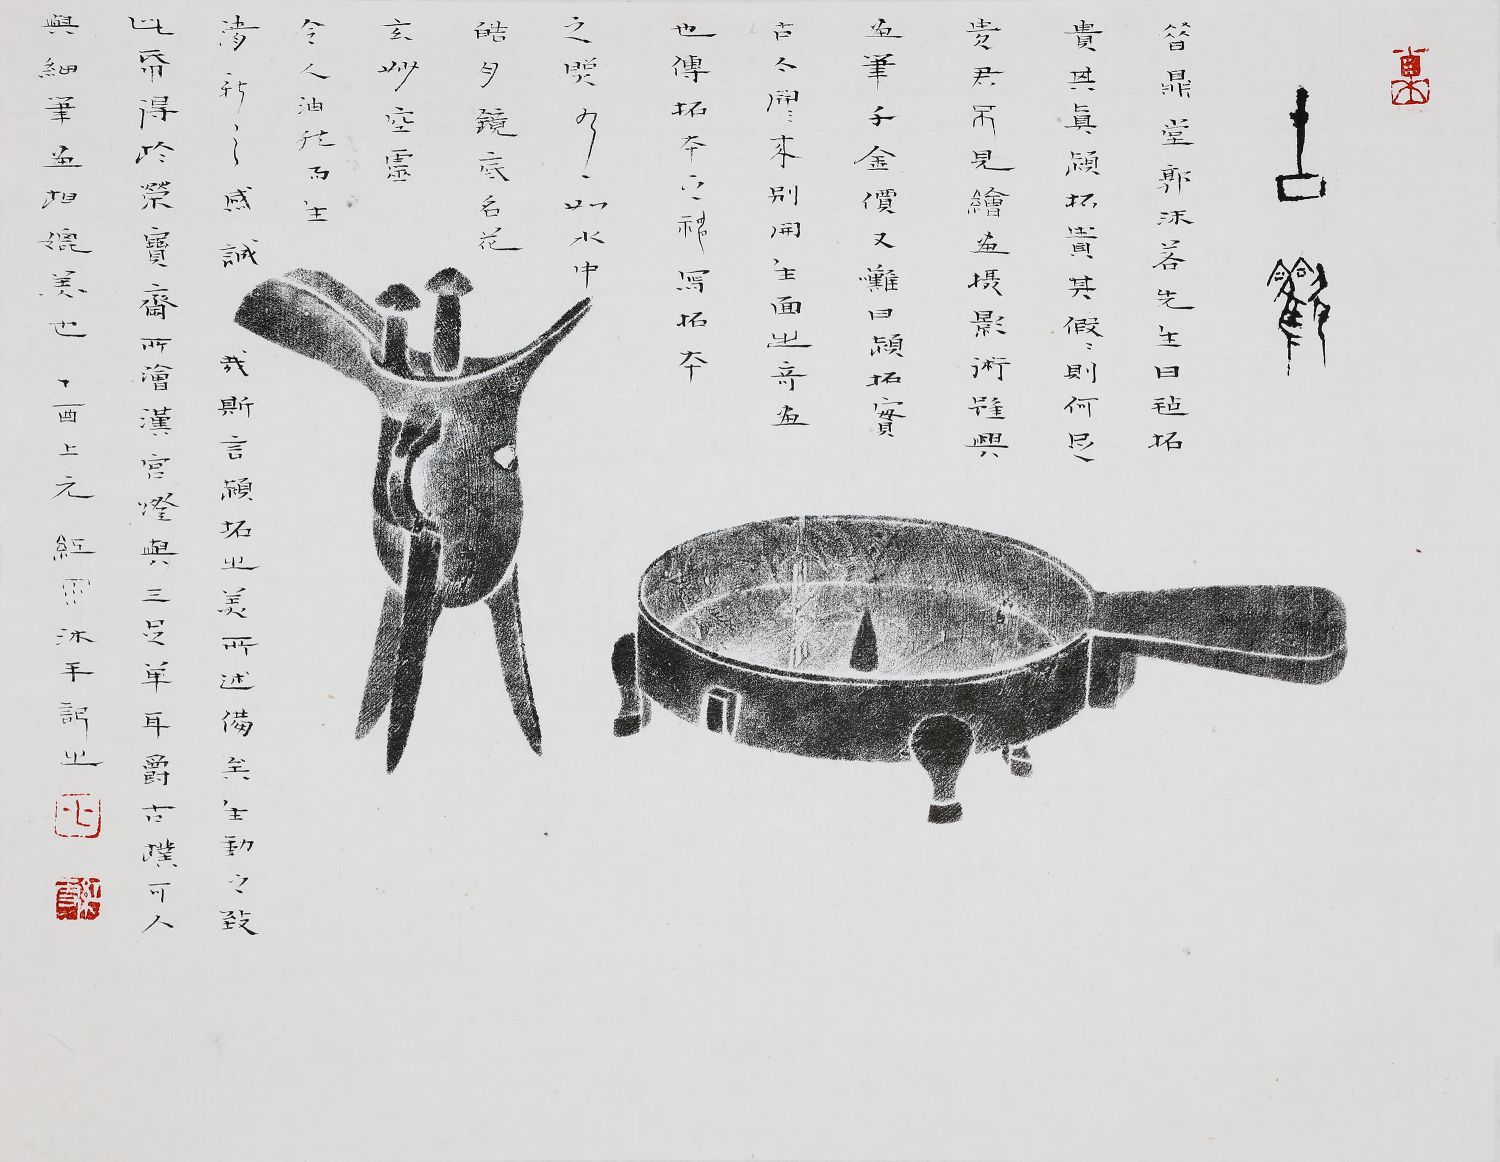 鼎堂郭沫若先生曰氈拓
貴其真穎拓貴其假〻則何足
貴君不見繪畫攝影術雖興
畫筆千金價又曰穎拓實
古今開來別開生面之奇畫
也傳拓本之神寫拓本
之如水中
皓月鏡底名花
玄妙空靈
令人油然而生
清新之感誠哉斯言穎拓之美所述備矣生動之致
此帋得於榮寶齋所繪漢宮燈與三足單耳爵古樸可人
與細筆畫相媲美也丁酉上元紅沐手記之